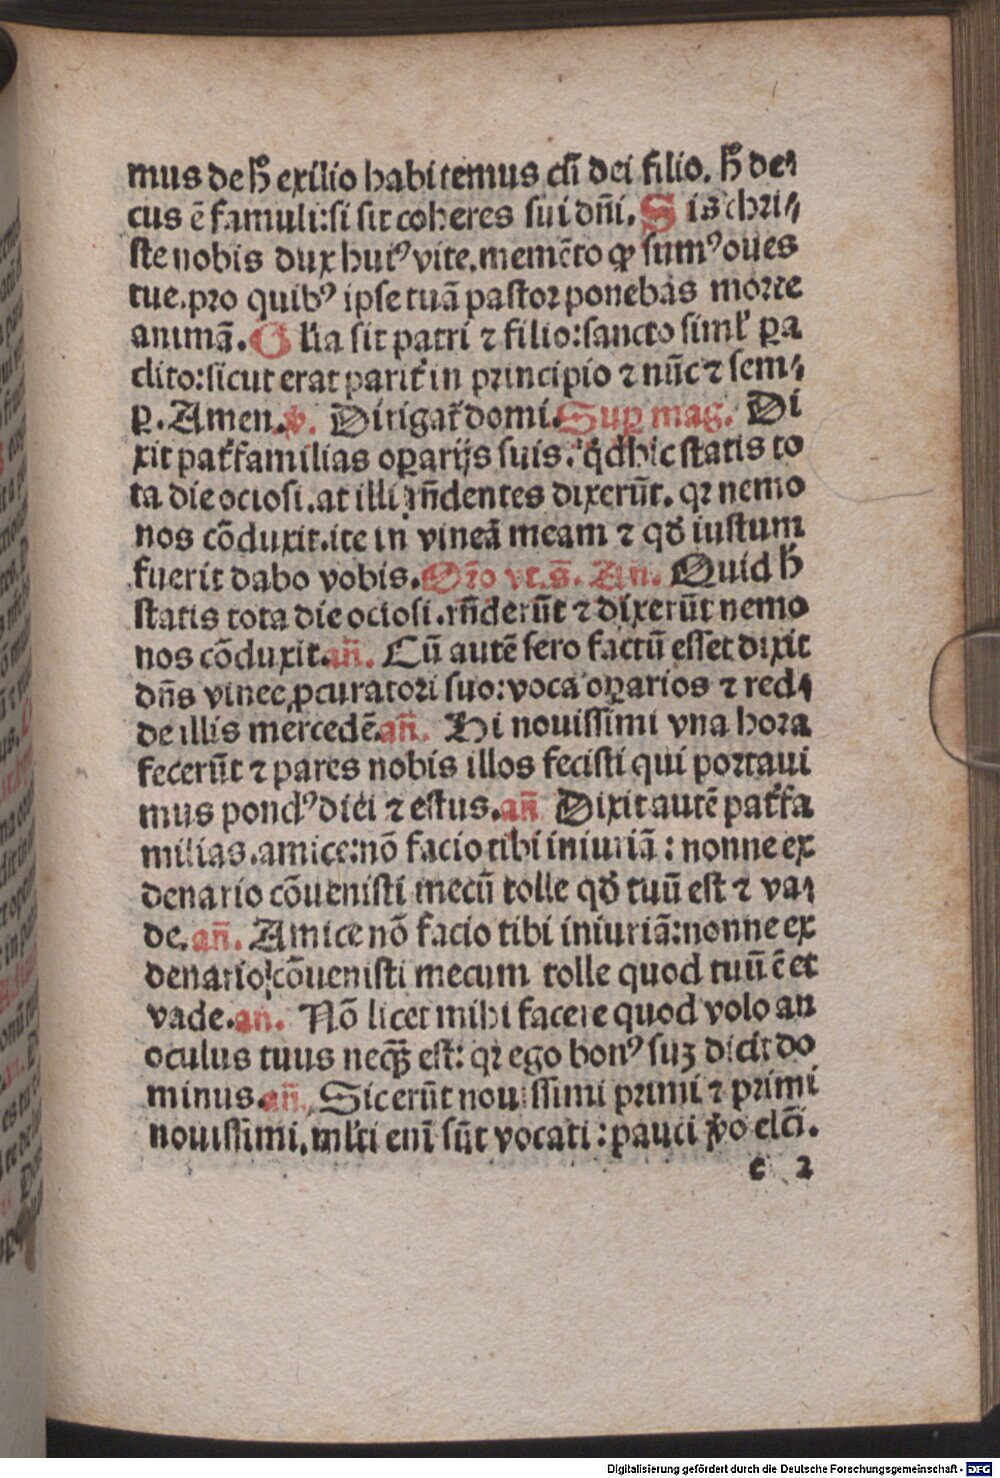 mus de hͦ exilio habitemus cū dei filio. hͦ de-
cus ē famuli: si sit coheres sui dn̄i. Sis chri-
ste nobis dux huiꝰ vite. memēto ꝙ sumꝰ oues
tue. pro quibꝰ ipse tuā pastor ponebas morte
animā. Glīa sit patri ⁊ filio: sancto siml̛ ꝑa
clito: sicut erat parit̛ in principio ⁊ nūc ⁊ sem-
ꝑ. Amen. ꝟ. Dirigat̛ domi. Suꝑ mag. Di
xit pat̛familias oꝑarijs suis. qͥd hic statis to
ta die ociosi. at illi rn̄dentes dixerūt. qꝛ nemo
nos cōduxit. ite in vineā meam ⁊ qd̛ iustum
fuerit dabo vobis. Or̄o vt. s̄. An. Quid hͦ
statis tota die ociosi. rn̄derūt ⁊ dixerūt nemo
nos cōduxit. an̄. Cū autē sero factū esset dixit
dn̄s vinee ꝓcuratori suo: voca oꝑarios ⁊ red-
de illis mercedē. an̄. Hi nouissimi vna hora
fecerūt ⁊ pares nobis illos fecisti qui portaui
mus pondꝰ diei ⁊ estus. an̄ Dixit autē pat̛fa
milias. amice: nō facio tibi iniuriā: nonne ex
denario cōuenisti mecū tolle qd̛ tuū est ⁊ va-
de. an̄. Amice nō facio tibi iniuriā: nonne ex
denario cōuenisti mecum tolle quod tuū ē et
vade. an̄. Nō licet mihi facere quod volo an
oculus tuus neqȝ̄ est: qꝛ ego bonꝰ suꝫ dicit do
minus. an̄. Sic erūt nouissimi primi ⁊ primi
nouissimi. ml̛ti eni̅ sūt vocati: pauci v̛o elc̄i.
c 2
Digitalisierung gefördert durch die Deutsche Forschungsgemeinschaft - DFG